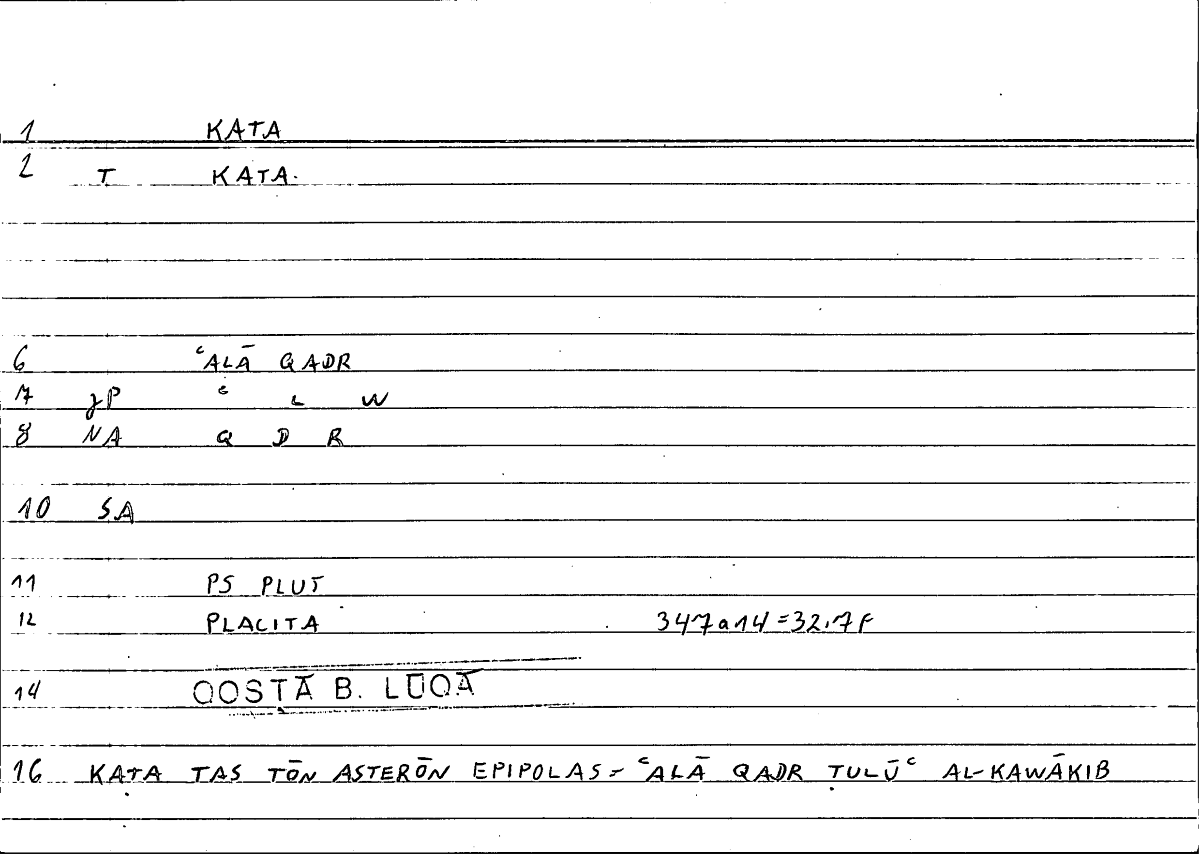 1 KATA
2 T KATA.
6 ʿALĀ QADR
7 jP ʿ L W
8 NA Q D R
10 SA
11 PS PLUT
12 PLACITA 347a14=32.7f
14 QOSṬĀ B. LŪQĀ
16 KATA TAS TŌN ASTERŌN EPIPOLAS = ʿALĀ QADR ṬULŪʿ AL-KAWĀKIB